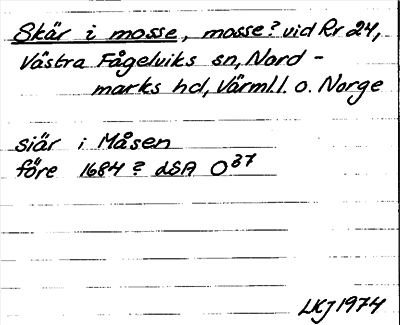 Skär i mosse, mosse? vid Rr 24,
Västra Fågelviks sn, Nord-
marks hd, Värml.l. o. Norge
siär i Måsen
före 1684? LSA O37
LKJ 1974